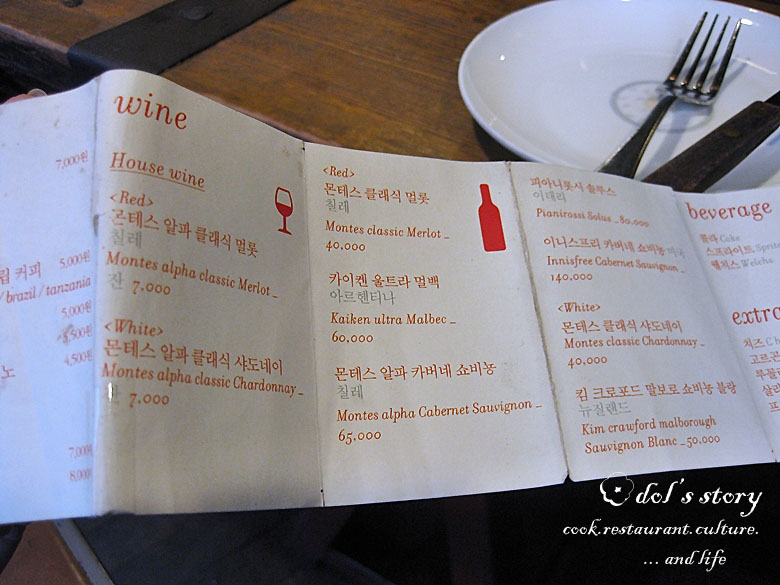 7,000원
립 커피 5,000원
/brazil/tanzania
5,000원
4,500원
노
7,000
8,000
wine
House wine
<Red>
몬테스 알파 클래식 멀롯
칠레
Montes alpha classic Merlot _
잔 7,000
<White>
몬테스 알파 클래식 샤도네이
Montes alpha classic Chardonnay _
잔 7,000
<Red>
몬테스 클래식 멀롯
칠레
Montes classic Merlot _
40,000
카이켄 울트라 멀백
아르헨티나
Kaiken ultra Malbec _
60,000
몬테스 알파 카버네 쇼비뇽
칠레
Montes alpha Cabernet Sauvignon _
65,000
피아니롯시 솔루스
이태리
Pianirossi Solus _80,000
이니스프리 카버네 쇼비뇽 미국
Innisfree Cabernet Sauvignon _
140,000
<White>
몬테스 클래식 샤도네이
Montes classic Chardonnay _
40,000
킴 크로포드 말보로 쇼비뇽 블랑
뉴질랜드
Kim crawford malborough
Sauvignon Blanc _50,000
beverage
콜라 Coke
스프라이트 Sprit
웰치스 Welchs
extra
치즈 Ch
고르곤
dol's story
cook.restaurant.culture.
... and life